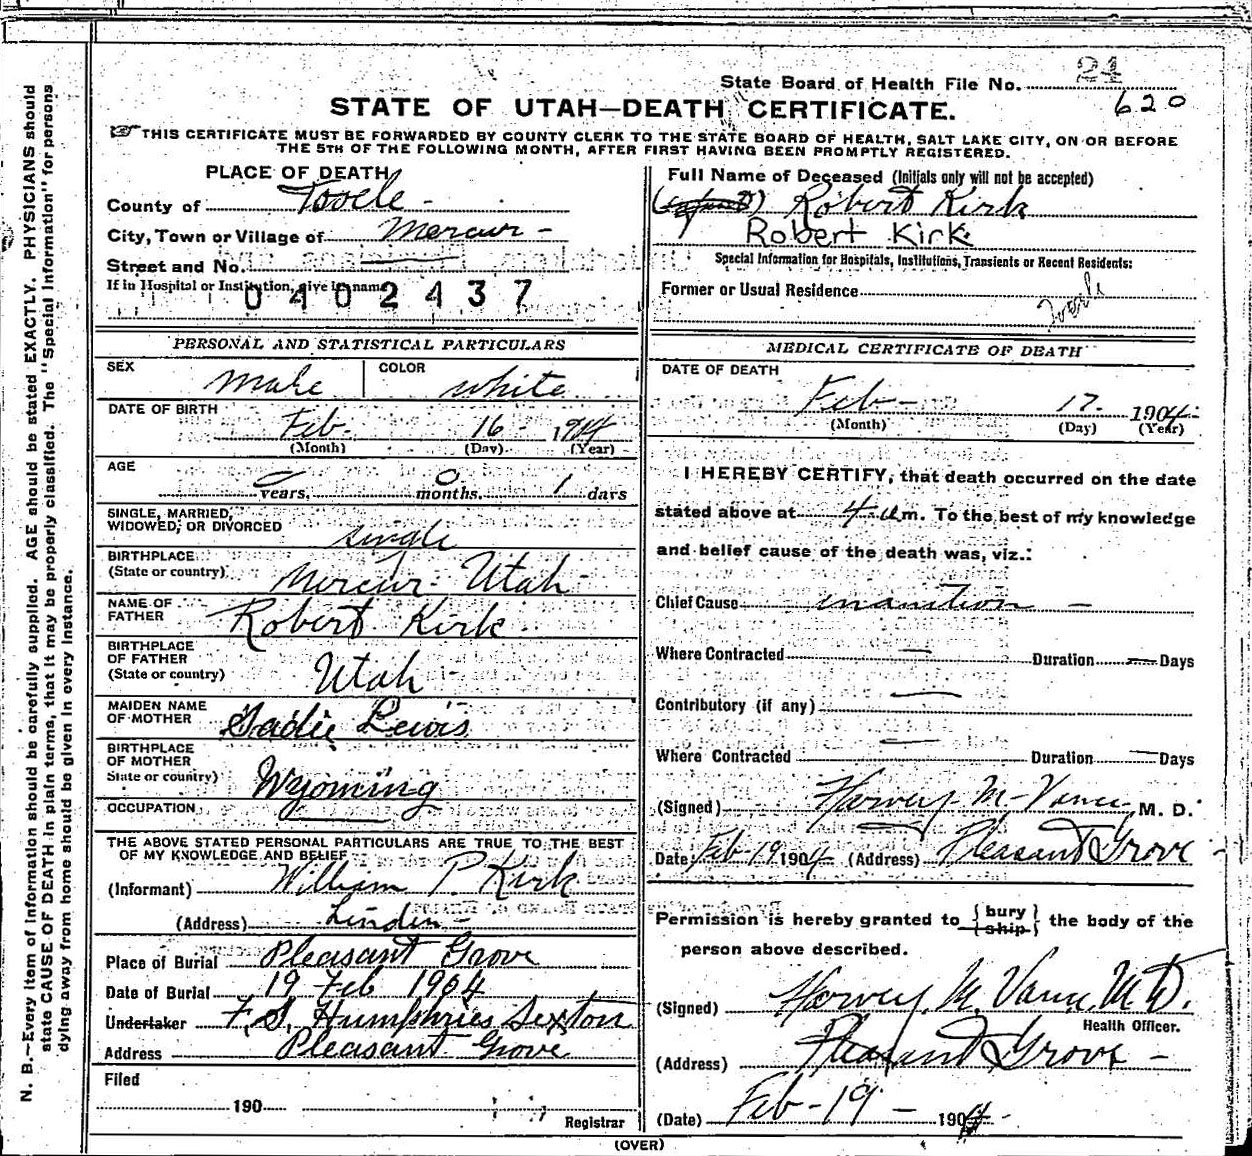 State Board of Health File No. 24
620
STATE OF UTAH—DEATH CERTIFICATE.
THIS CERTIFICATE MUST BE FORWARDED BY COUNTY CLERK TO THE STATE BOARD OF HEALTH, SALT LAKE CITY, ON OR BEFORE
THE 5TH OF THE FOLLOWING MONTH, AFTER FIRST HAVING BEEN PROMPTLY REGISTERED.
N. B.—Every item of information should be carefully supplied. AGE should be stated EXACTLY. PHYSICIANS should
state CAUSE OF DEATH in plain terms, that it may be properly classified. The "Special Information" for persons
dying away from home should be given in every instance.
PLACE OF DEATH
County of Tooele -
City, Town or Village of Mercur -
Street and No. —
If in Hospital or Institution, give its name
0402437
PERSONAL AND STATISTICAL PARTICULARS
SEX male COLOR white
DATE OF BIRTH
Feb- 16- 1904
(Month) (Day) (Year)
AGE
0 years, 0 months, 1 days
SINGLE, MARRIED,
WIDOWED, OR DIVORCED single
BIRTHPLACE
(State or country) Mercur- Utah-
NAME OF
FATHER Robert Kirk.
BIRTHPLACE
OF FATHER
(State or country) Utah
MAIDEN NAME
OF MOTHER Sadie Lewis
BIRTHPLACE
OF MOTHER
State or country) Wyoming
OCCUPATION —
THE ABOVE STATED PERSONAL PARTICULARS ARE TRUE TO THE BEST
OF MY KNOWLEDGE AND BELIEF
(Informant) William P. Kirk
(Address) Linden-
Place of Burial Pleasant Grove
Date of Burial 19 Feb 1904
Undertaker F. S. Humphries Sexton
Address Pleasant Grove
Filed
190
Registrar
Full Name of Deceased (Initials only will not be accepted)
Robert Kirk
Robert Kirk
Special Information for Hospitals, Institutions, Transients or Recent Residents:
Former or Usual Residence
MEDICAL CERTIFICATE OF DEATH
DATE OF DEATH
Feb- 17- 1904-
(Month) (Day) (Year)
I HEREBY CERTIFY, that death occurred on the date
stated above at 4 a m. To the best of my knowledge
and belief cause of the death was, viz.:
Chief Cause inanition -
Where Contracted — Duration — Days
Contributory (if any) —
Where Contracted — Duration — Days
(Signed) Harvey M- Vance M. D.
Date Feb-19 1904- (Address) Pleasant Grove -
Permission is hereby granted to {bury ship} the body of the
person above described.
(Signed) Harvey. M. Vance, M D.
Health Officer.
(Address) Pleasant Grove -
(Date) Feb-19- 1904-
(OVER)